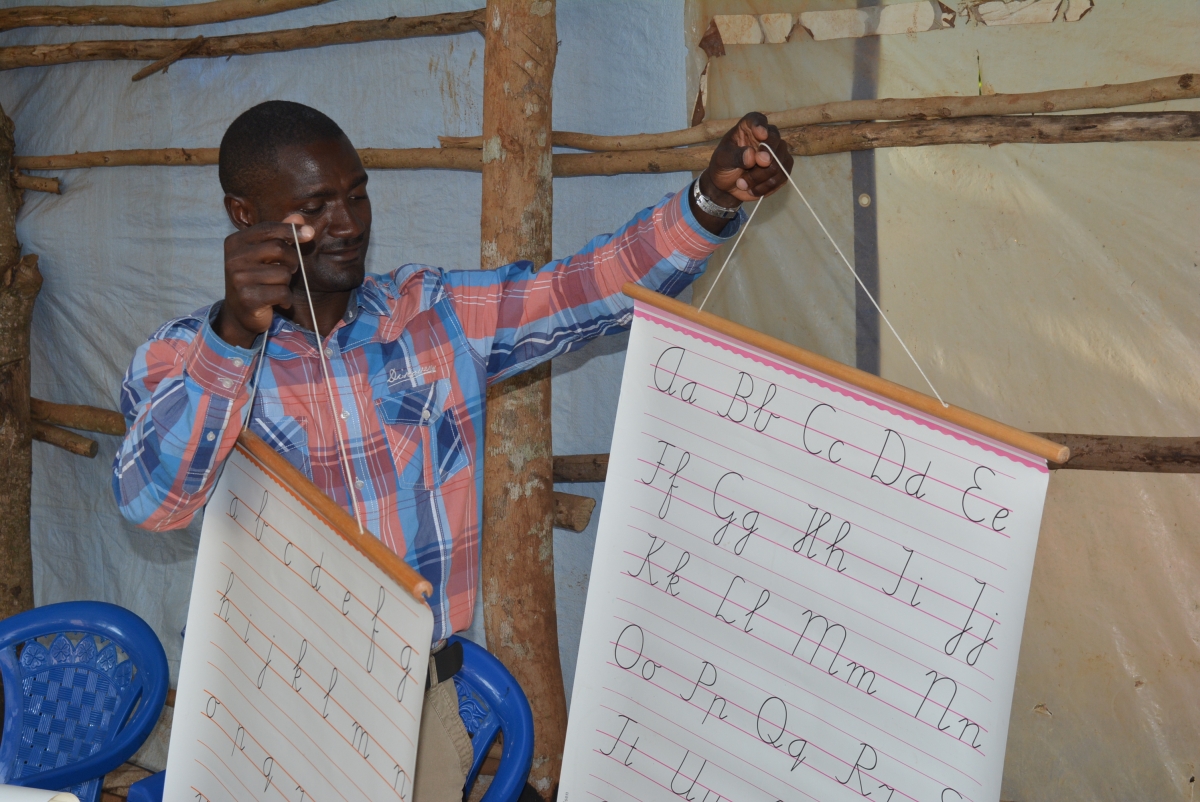 a b c d e f g
h i j k l m n
o p q
Aa Bb Cc Dd Ee
Ff Gg Hh Ii Jj
Kk Ll Mm Nn
Oo Pp Qq Rr
Tt Uu